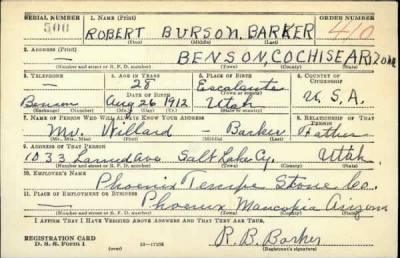 SERIAL NUMBER 1. NAME (Print) ORDER NUMBER
500 ROBERT BURSON BARKER 410
(First) (Middle) (Last)
2. ADDRESS (Print)
— BENSON, COCHISE ARIZONA
(Number and street or R. F. D. number) (Town) (County) (State)
3. TELEPHONE 4. AGE IN YEARS 5. PLACE OF BIRTH 6. COUNTRY OF CITIZENSHIP
— 28 Escalante
DATE OF BIRTH (Town or county)
Benson Aug 26 1912 Utah U. S. A.
(Exchange) (Number) (Mo.) (Day) (Yr.) (State or country)
7. NAME OF PERSON WHO WILL ALWAYS KNOW YOUR ADDRESS 8. RELATIONSHIP OF THAT PERSON
Mr. Willard — Barker Father
(Mr., Mrs., Miss) (First) (Middle) (Last)
9. ADDRESS OF THAT PERSON
1033 Ave. Salt Lake Cy. Utah
(Number and street or R. F. D. number) (Town) (County) (State)
10. EMPLOYER'S NAME
Phoenix Tempe Stone Co.
11. PLACE OF EMPLOYMENT OR BUSINESS
— Phoenix, Maricopia Arizona
(Number and street or R. F. D. number) (Town) (County) (State)
I AFFIRM THAT I HAVE VERIFIED ABOVE ANSWERS AND THAT THEY ARE TRUE.
REGISTRATION CARD
D. S. S. Form 1 R. B. Barker
(Registrant's signature)